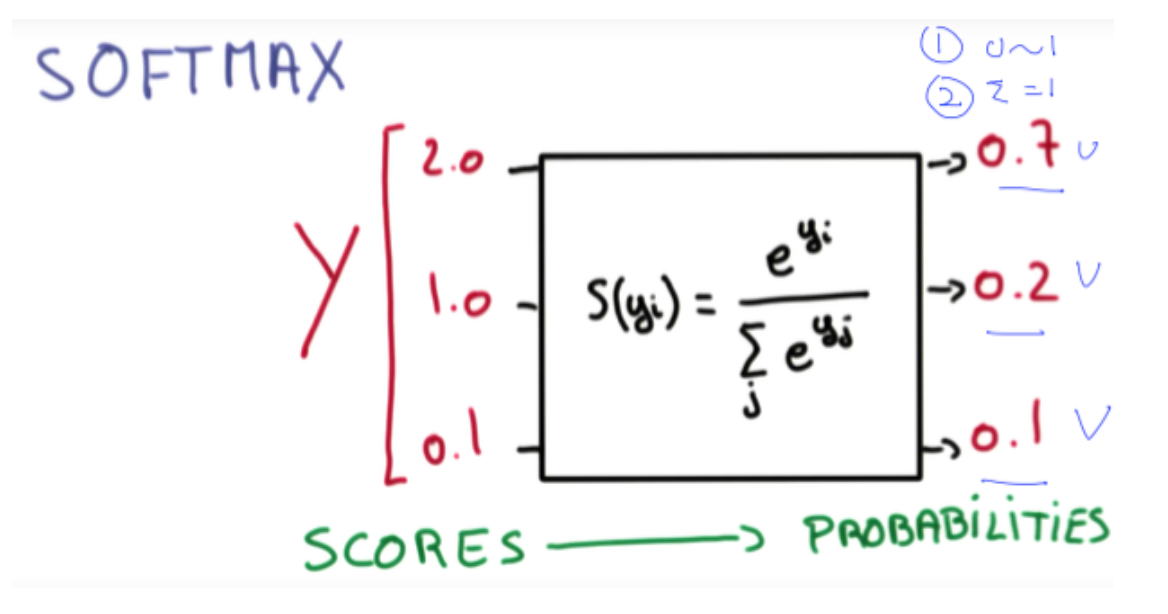 SOFTMAX
① 0~1
② Σ=1
Y
2.0
1.0
0.1
S(yi) = e^yi / Σj e^yj
→ 0.7 ∪
→ 0.2 ∨
→ 0.1 ∨
SCORES → PROBABILITIES